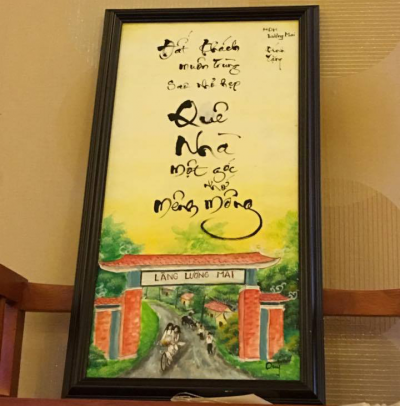 Đất khách
muôn trùng
sao nhỏ hẹp
Quê
Nhà
một góc
nhớ
mênh mông
LÀNG LƯƠNG MAI